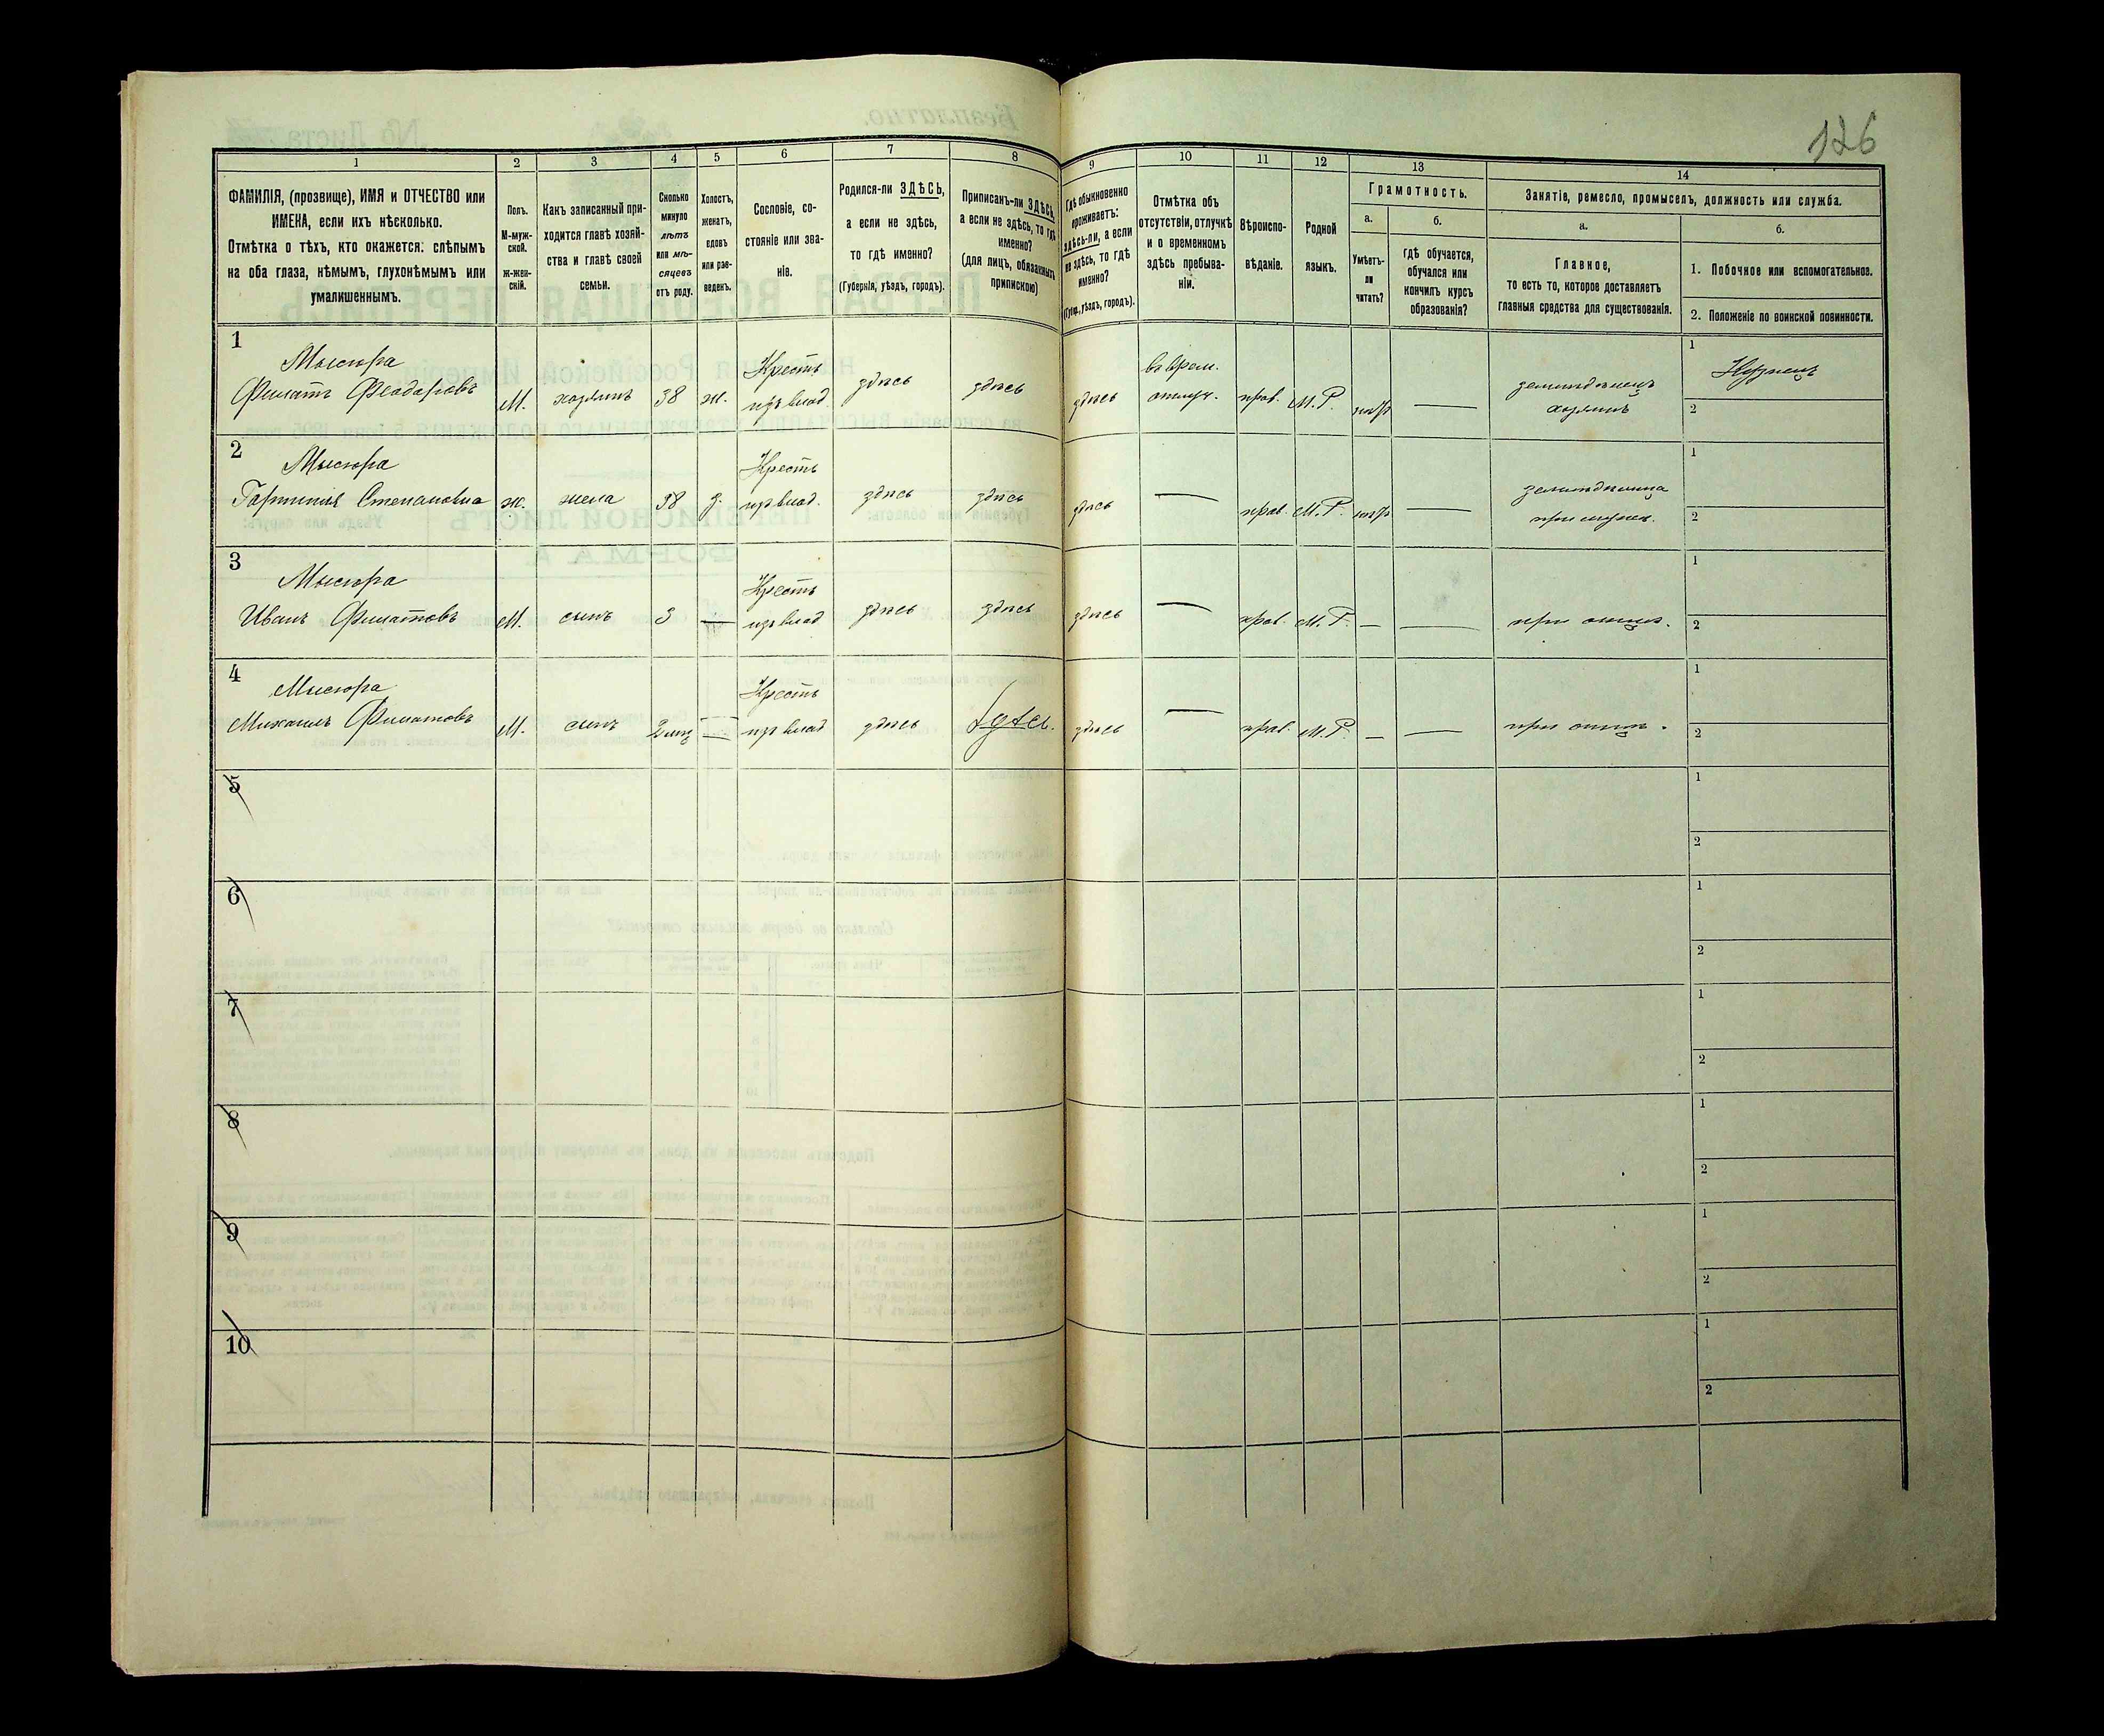 126
1
2
3
4
5
6
7
8
9
10
11
12
13
14
ФАМИЛІЯ, (прозвище), ИМЯ и ОТЧЕСТВО или
ИМЕНА, если ихъ нѣсколько.
Отмѣтка о тѣхъ, кто окажется: слѣпымъ
на оба глаза, нѣмымъ, глухонѣмымъ или
умалишеннымъ.
Полъ.
М-муж-
ской.
ж-жен-
скій.
Какъ записанный при-
ходится главѣ хозяй-
ства и главѣ своей
семьи.
Сколько
минуло
лѣтъ
или мѣ-
сяцевъ
отъ роду.
Холостъ,
женатъ,
вдовъ
или раз-
веденъ.
Сословіе, со-
стояніе или зва-
ніе.
Родился-ли ЗДѢСЬ,
а если не здѣсь,
то гдѣ именно?
(Губернія, уѣздъ, городъ).
Приписанъ-ли ЗДѢСЬ,
а если не здѣсь, то гдѣ
именно?
(для лицъ, обязанныхъ
припискою)
Гдѣ обыкновенно
проживаетъ:
здѣсь-ли, а если
не здѣсь, то гдѣ
именно?
(Губер., уѣздъ, городъ).
Отмѣтка объ
отсутствіи, отлучкѣ
и о временномъ
здѣсь пребыва-
ніи.
Вѣроиспо-
вѣданіе.
Родной
языкъ.
Грамотность.
а.
Умѣетъ-
ли
читать?
б.
гдѣ обучается,
обучался или
кончилъ курсъ
образованія?
Занятіе, ремесло, промыселъ, должность или служба.
а.
Главное,
то есть то, которое доставляетъ
главныя средства для существованія.
б.
1. Побочное или вспомогательное.
2. Положеніе по воинской повинности.
1
Мысюра
Филатъ Феодоровъ
М.
хозяинъ
38
ж.
Крестъ
изъ влад.
здѣсь
здѣсь
здѣсь
въ врем.
отлуч.
прав.
М.Р.
земледѣлецъ
хозяинъ
1
Кузнецъ
2
2
Мысюра
Степановна
ж.
жена
38
з.
Крестъ
изъ влад.
здѣсь
здѣсь
здѣсь
—
прав.
М.Р.
—
земледѣлица
при мужѣ.
1
2
3
Мысюра
Иванъ Филатовъ
М.
сынъ
3
—
Крестъ
изъ влад
здѣсь
здѣсь
здѣсь
—
прав.
М.Р.
—
—
при отцѣ.
1
2
4
Мысюра
Михаилъ Филатовъ
М.
сынъ
2 мѣц
—
Крестъ
изъ влад
здѣсь
здѣсь
—
прав.
М.Р.
—
—
при отцѣ.
1
2
5
1
2
6
1
2
7
1
2
8
1
2
9
1
2
10
1
2